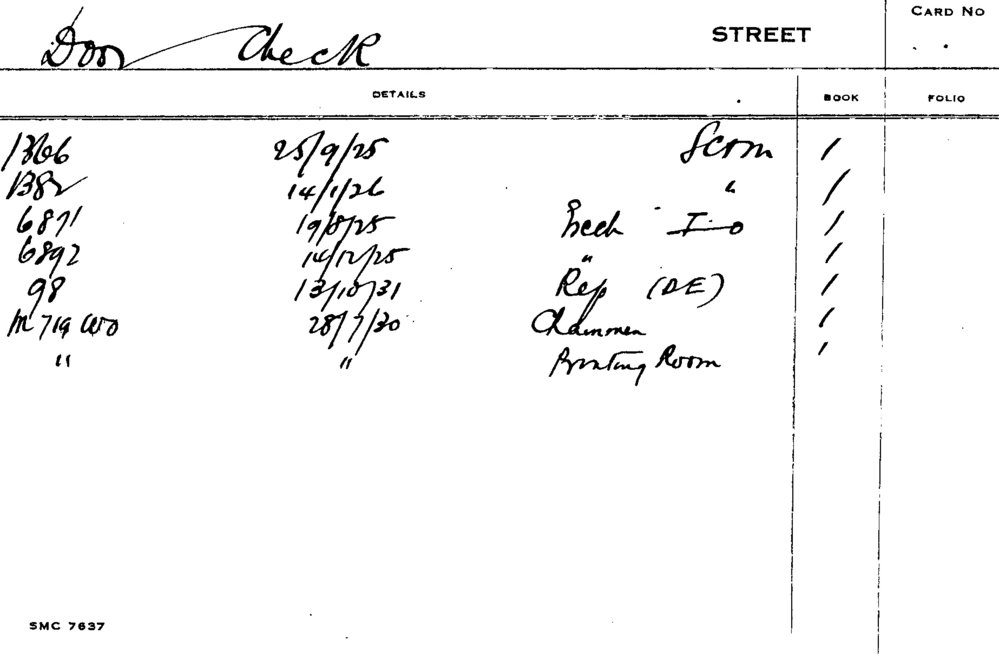 Door Check STREET CARD NO
DETAILS BOOK FOLIO
1366 25/9/25 /
B82 14/1/26 " /
6871 19/8/25 /
6892 14/12/25 " /
98 13/10/31 Rep (DE) /
M 719 28/7/30 Chainmen /
" " Printing Room /
SMC 7637